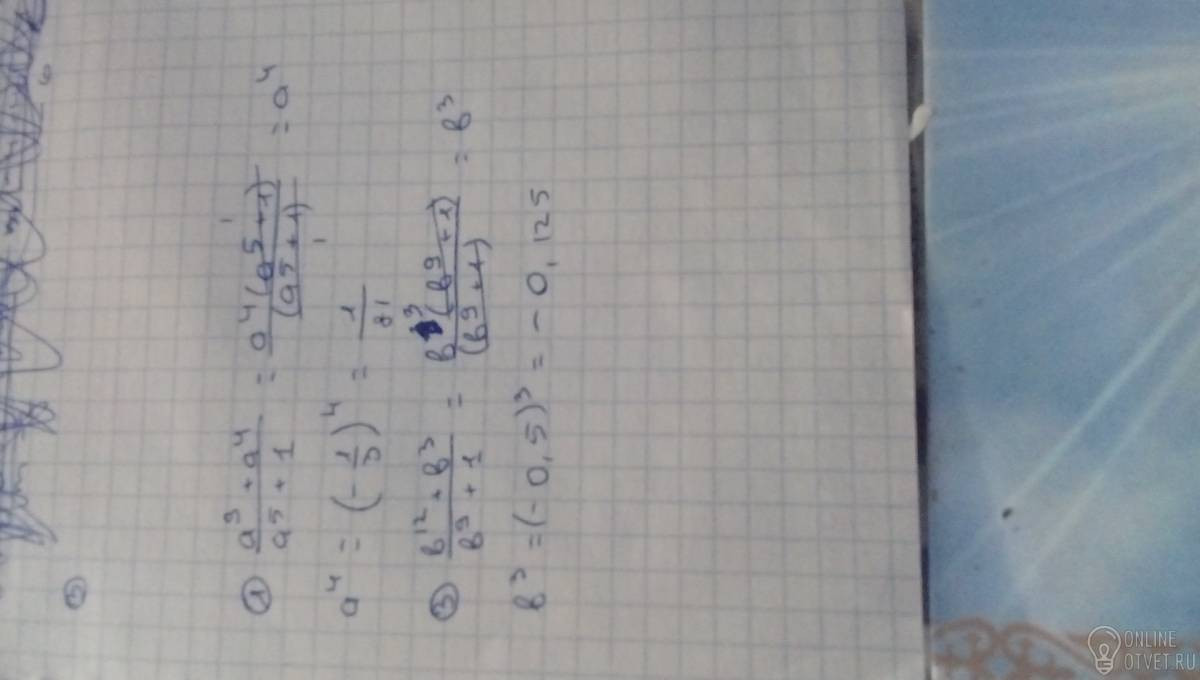 ③
① (a⁹ + a⁴)/(a⁵ + 1) = a⁴(a⁵ + 1)/(a⁵ + 1) = a⁴
a⁴ = (-1/3)⁴ = 1/81
③ (b¹² + b³)/(b⁹ + 1) = b³(b⁹ + 1)/(b⁹ + 1) = b³
b³ = (-0,5)³ = -0,125
ONLINE
OTVET.RU